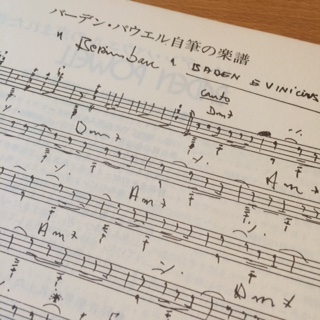 バーデン・パウエル自筆の楽譜
"Berimbau" BADEN E VINICIUS
canto
Dm7
Dm7
Am7
Am7
Am7
Dm7